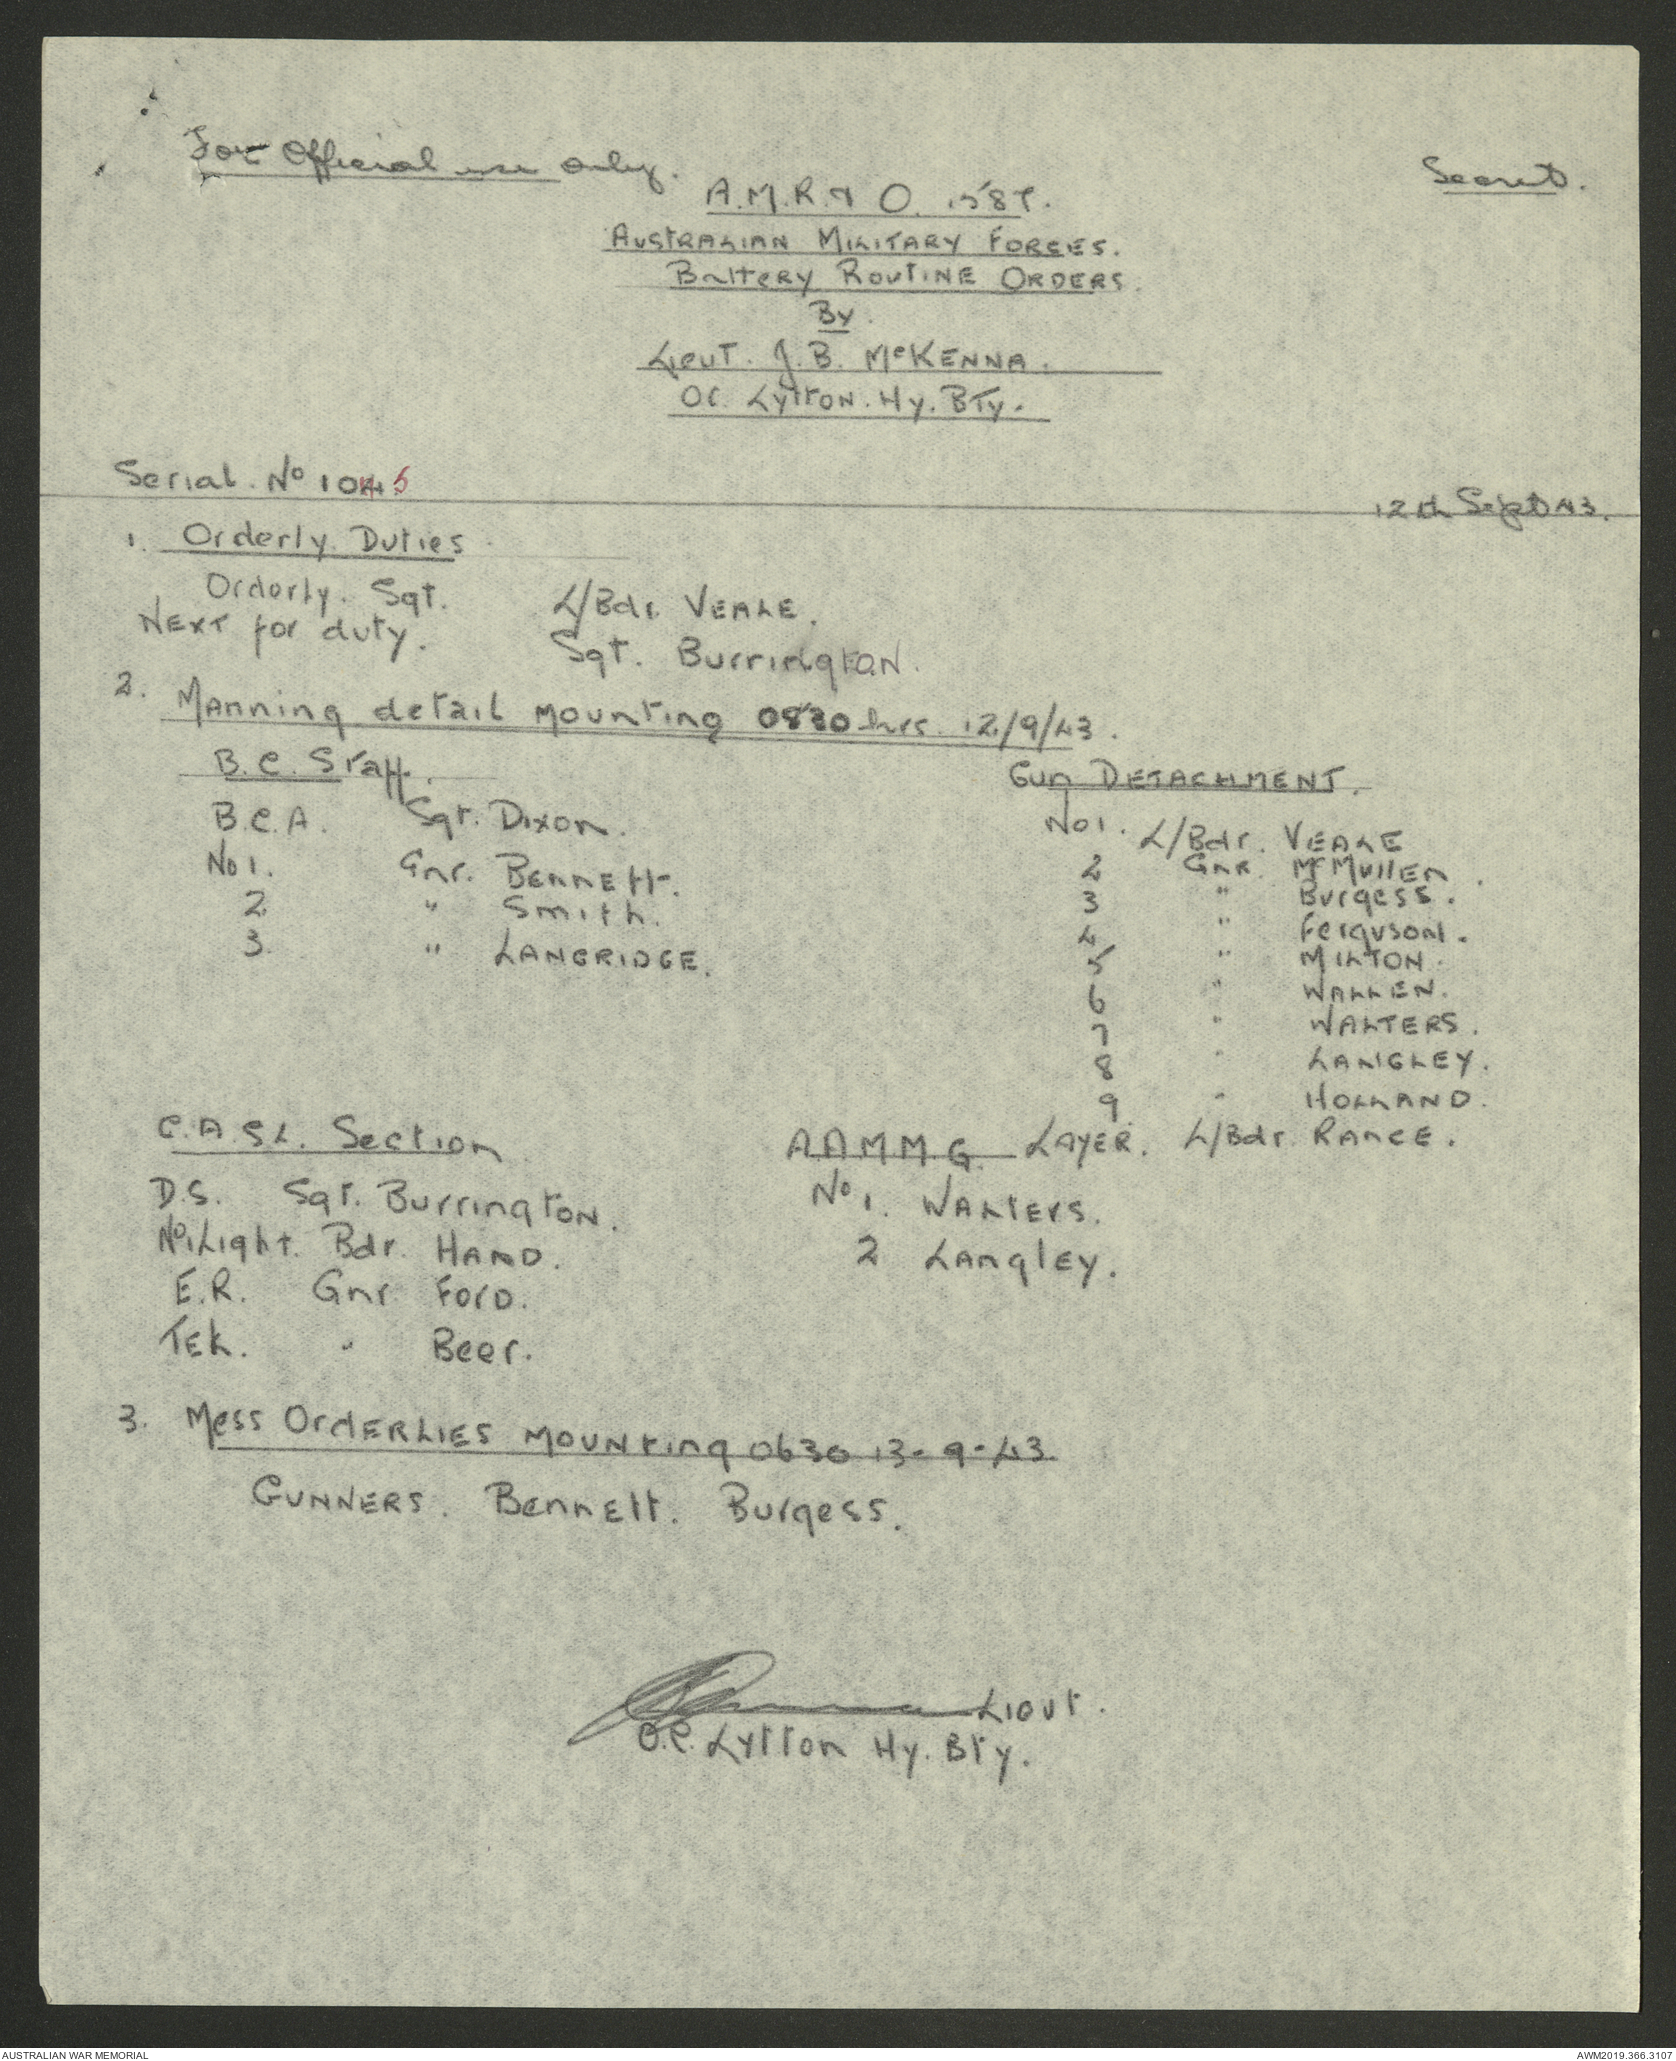 For Official use only.
Secret.
A.M.R. & O. 1587.
AUSTRALIAN MILITARY FORCES.
BATTERY ROUTINE ORDERS.
By.
Lieut. J.B. McKENNA.
OC. Lytton. Hy. Bty.
Serial. No 1045
12th Sept 43.
1. Orderly Duties
Orderly. Sgt. L/Bdr. VEALE.
NEXT for duty. Sgt. Burrington.
2. Manning detail mounting 0830 hrs. 12/9/43.
B.C. Staff.
B.C.A. Sgt. Dixon.
No 1. Gnr. BENNETT.
2 " Smith.
3. " LANGRIDGE.
Gun DETACHMENT.
No 1. L/Bdr. VEALE
2 Gnr. McMullen.
3 " Burgess.
4 " Ferguson.
5 " MILTON.
6 " WALLEN.
7 " WALTERS.
8 " LANGLEY.
9 " HOLLAND.
C.A.S.L. Section
D.S. Sgt. Burrington.
No.1 Light. Bdr. HAND.
E.R. Gnr. Ford.
Tel. " Beer.
A A M M G. LAYER. L/Bdr. RANCE.
No 1. WALTERS.
2 Langley.
3. Mess ORDERLIES MOUNTING 0630 13-9-43.
GUNNERS. Bennett. Burgess.
Lieut.
O.C. Lytton Hy. Bty.
AUSTRALIAN WAR MEMORIAL
AWM2019.366.3107